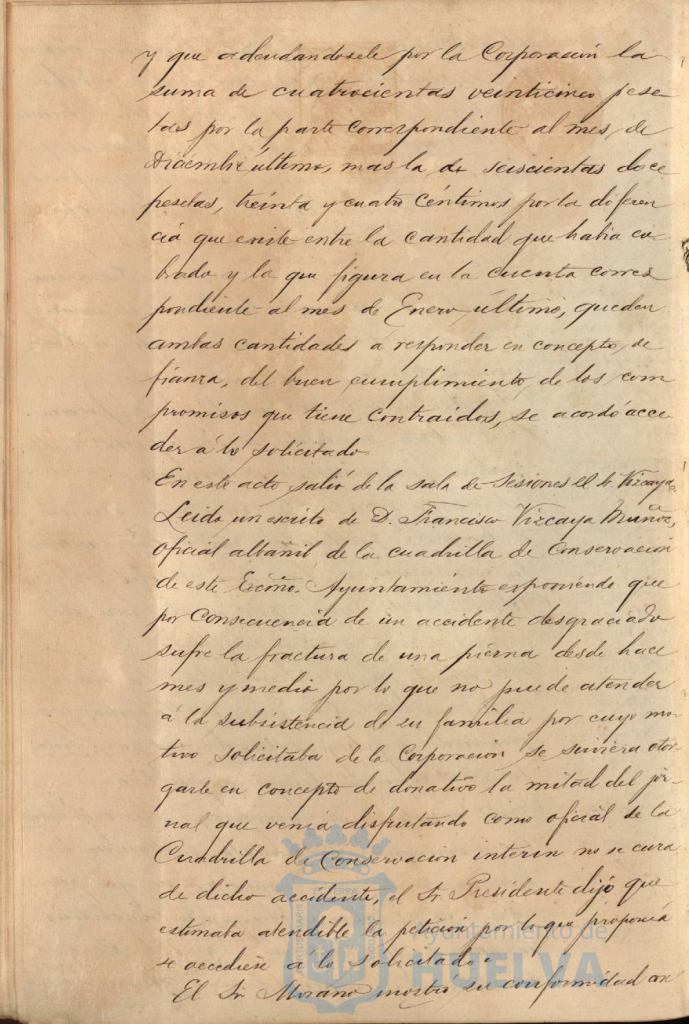 y que adeudandosele por la Corporación la
suma de cuatrocientas veinticinco pese-
tas por la parte correspondiente al mes de
Diciembre último, mas la de seiscientas doce
pesetas, treinta y cuatro céntimos por la diferen
cia que existe entre la cantidad que habia co-
brado y la que figura en la cuenta corres
pondiente al mes de Enero último, quedan
ambas cantidades a responder en concepto de
fianza, del buen cumplimiento de los com
promisos que tiene contraidos, se acordó acce
der á lo solicitado.
En este acto salió de la sala de Sesiones el Sr. Vizcaya
Leido un escrito de D. Francisco Vizcaya Muñoz,
oficial albañil de la cuadrilla de Conservación
de este Excmo. Ayuntamiento exponiendo que
por consecuencia de un accidente desgraciado
sufre la fractura de una pierna desde hace
mes y medio por lo que no puede atender
á la subsistencia de su familia por cuyo mo-
tivo solicitaba de la Corporación se sirviera otor-
garle en concepto de donativo la mitad del jor-
nal que venia disfrutando como oficial de la
Cuadrilla de Conservacion interin no se cura
de dicho accidente, el Sr. Presidente dijo que
estimaba atendible la petición por lo que proponia
se accediese á lo solicitado.
El Sr. Morano mostró su conformidad con
Ayuntamiento de
HUELVA